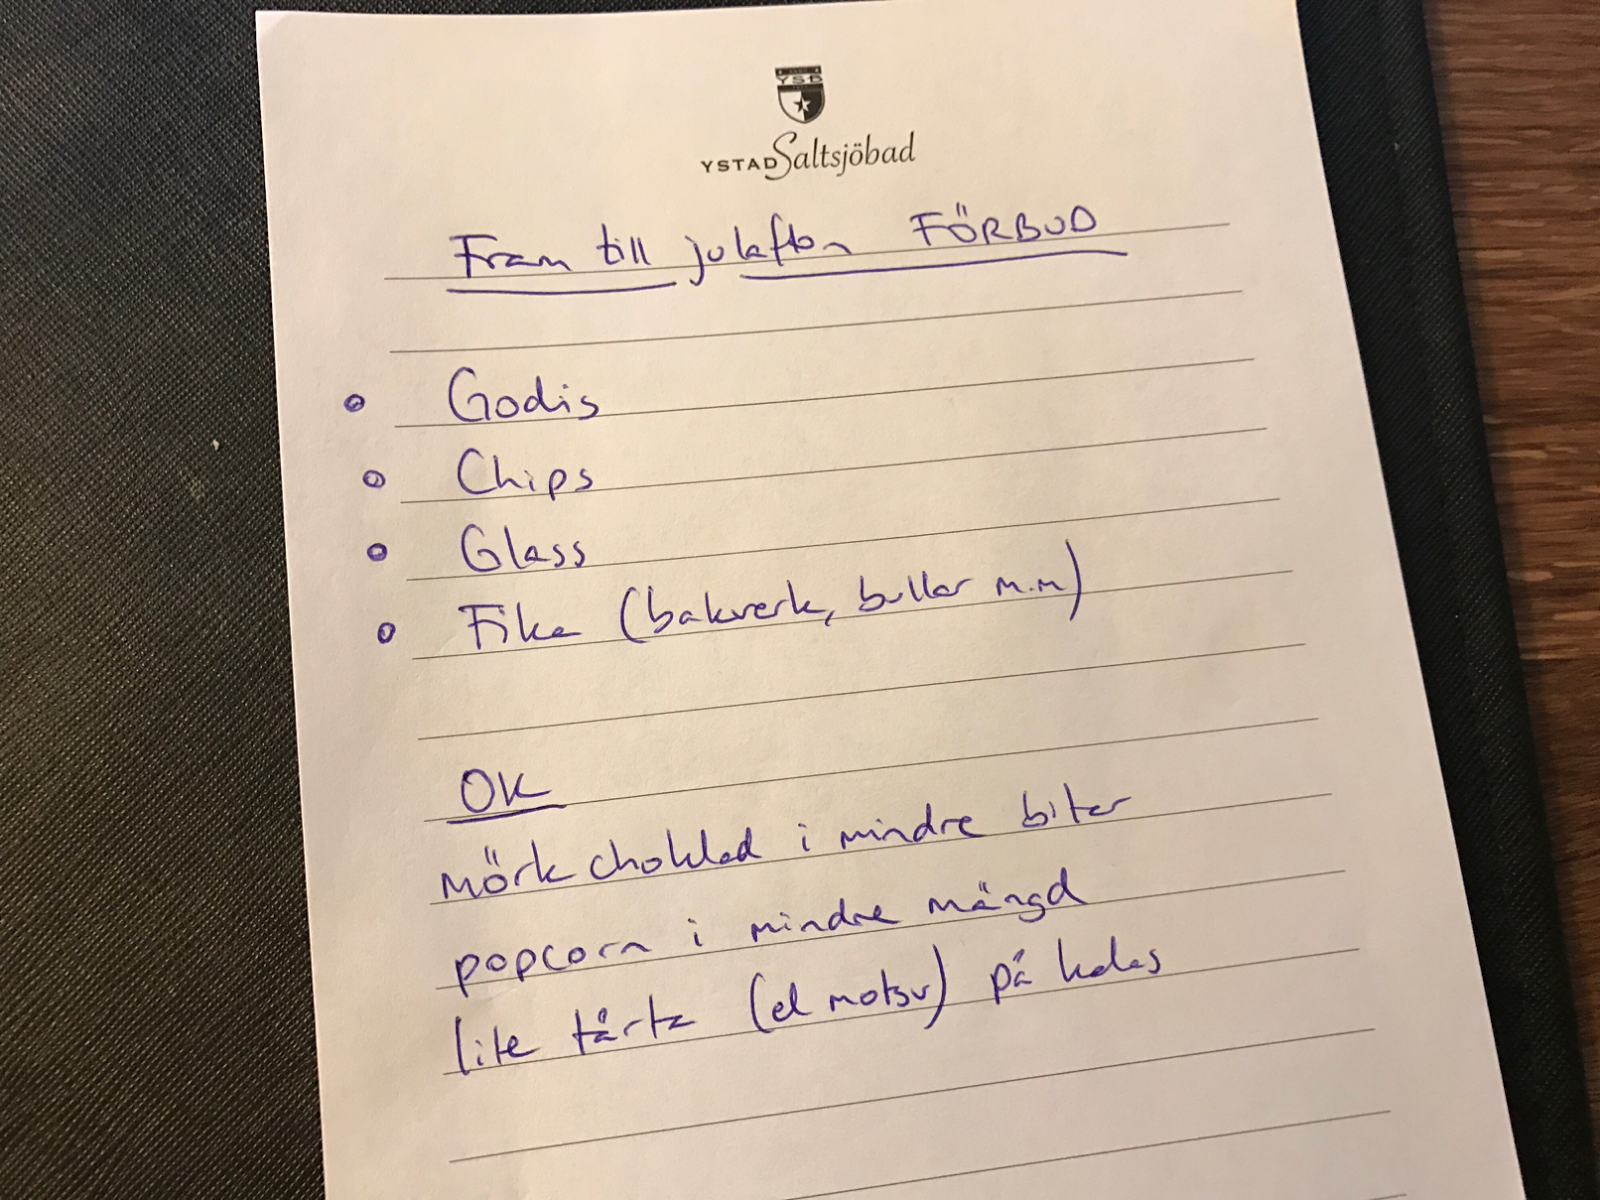 YSD
YSTAD Saltsjöbad
Fram till julafton FÖRBUD
Godis
Chips
Glass
Fika (bakverk, bullar m.m)
OK
mörk choklad i mindre bitar
popcorn i mindre mängd
lite tårta (el motsv) på kalas